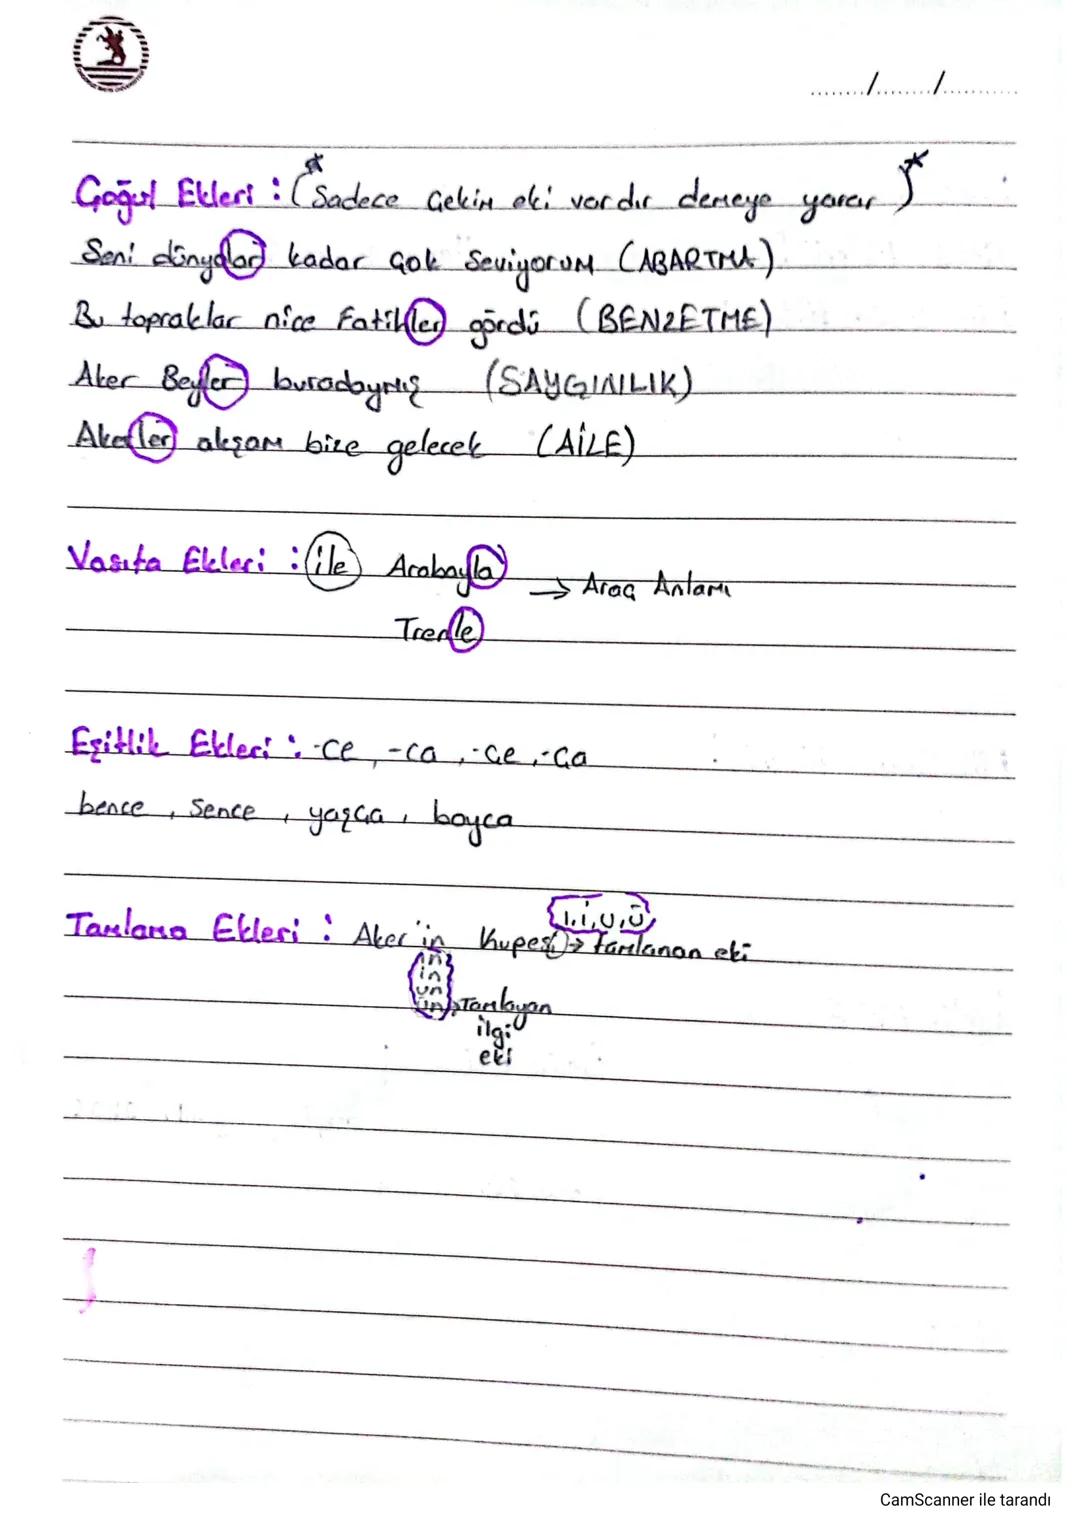 ......../......../...........
Çoğul Ekleri : (Sadece Çekim eki vardır demeye yarar)
Seni dünyalar kadar çok seviyorum (ABARTMA)
Bu topraklar nice Fatihler gördü (BENZETME)
Aker Beyler buradaymış (SAYGINILIK)
Akerler akşam bize gelecek (AİLE)
Vasıta Ekleri : ile Arabayla → Araç Anlamı
Trenle
Eşitlik Ekleri : -ce, -ca, -çe, -ça
bence, sence, yaşça, boyca
ı, i, u, ü
Tamlama Ekleri : Aker'in Kupesi → tamlanan eki
ın
in
un
ün → Tamlayan
ilgi
eki
CamScanner ile tarandı